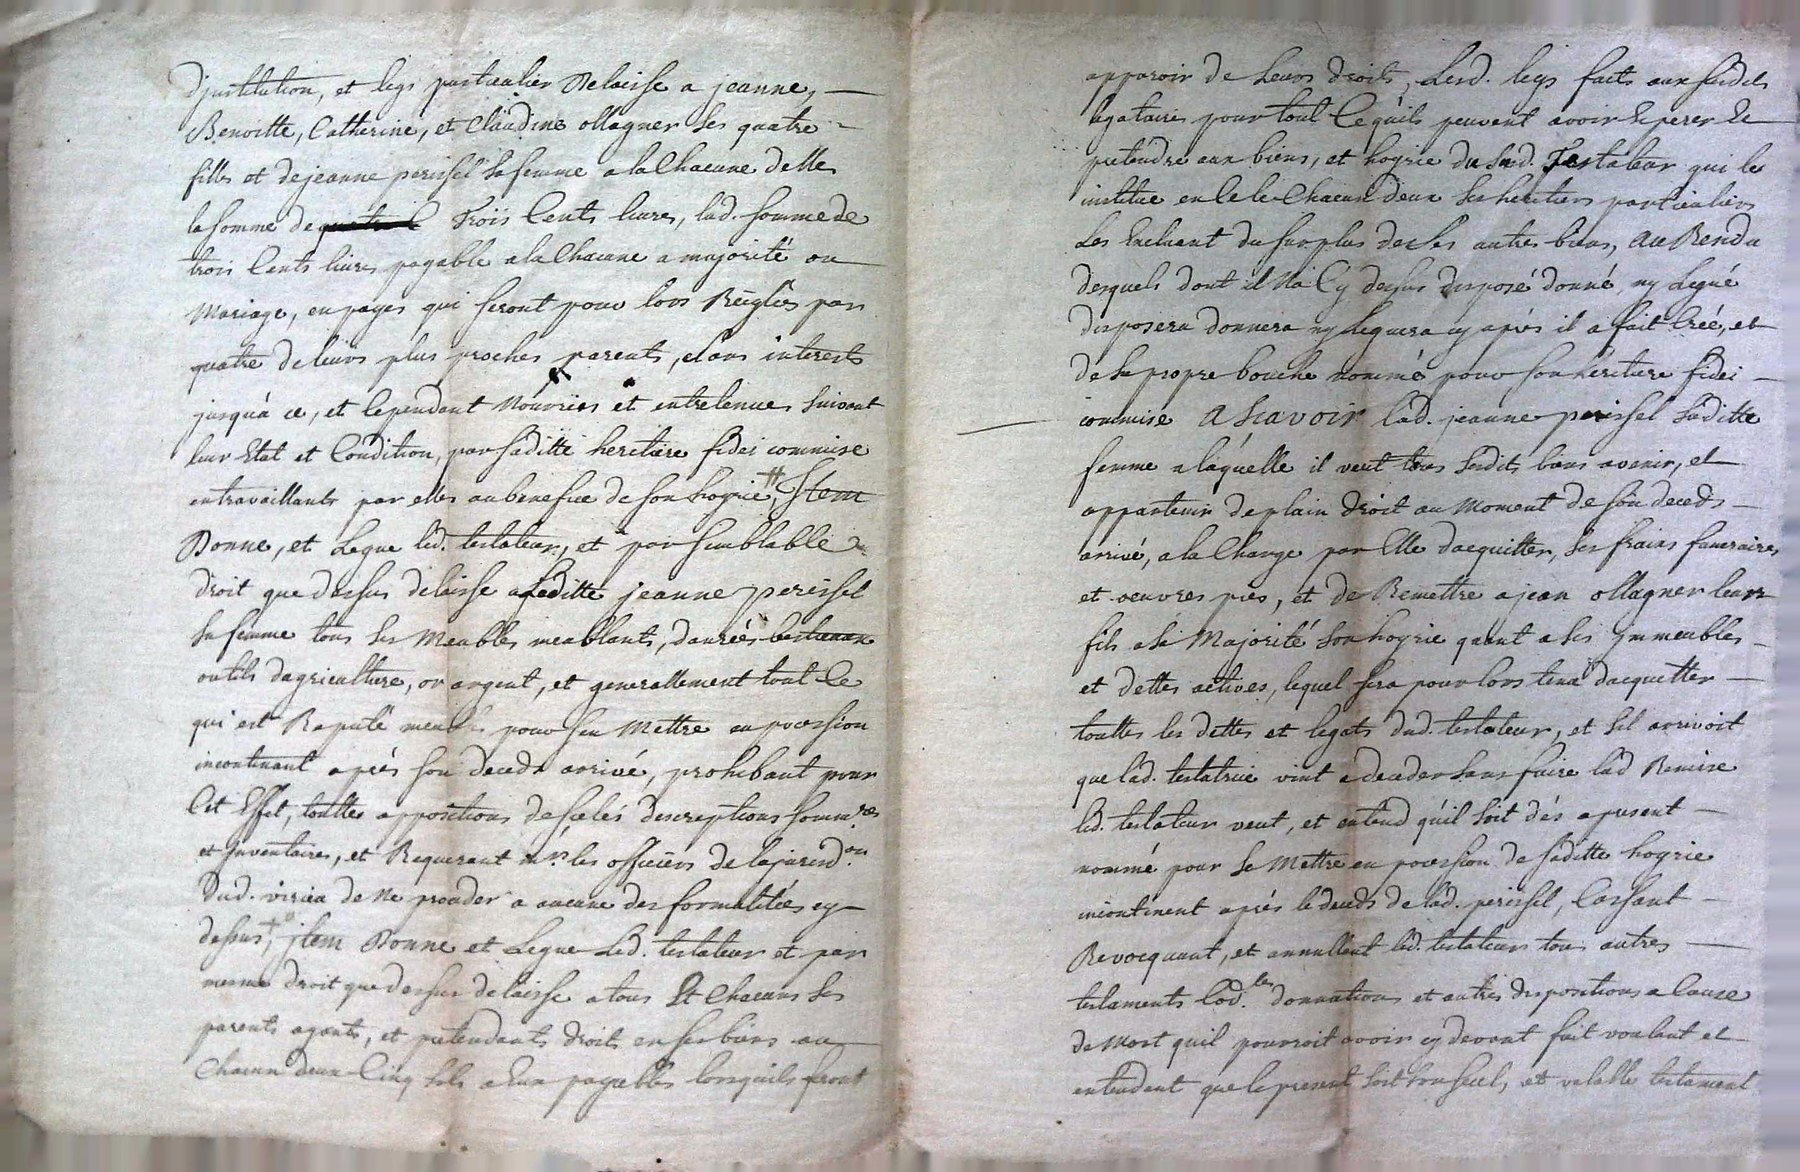 d'jnstitution, et legs particulier Delaisse a jeanne, —
Benoitte, Catherine, et Claudine ollagner ses quatre –
filles et de jeanne perissel sa femme a la Chacune delles
la somme de Trois Cents livres, lad. somme de
trois Cents livres payable a la Chacune a majorité ou
Mariage, en payes qui seront pour lors Reiglés par
quatre de leurs plus proches parents, sans interests
jusqu'a ce, et Cependant Nourries et entretenues suivant
leur Etat et Condition, par saditte heritiere fidei commise
en travaillants par elles au benefice de son hoyrie ⌗, Jtem
Donne, et Legue led. testateur, et par semblable
droit que dessus delaisse a laditte jeanne perissel
sa femme tous ses Meubles meublants, danrées bestiaux
outils dagriculture, or argent, et generallement tout Ce
qui est Reputé meubles pour sen Mettre en pocession
incontinant aprés son decedz arrivé, prohibant pour
Cet Effet, touttes appositions de scelés descreptions somm.res
et jnventaires, et Requerant m.rs les officiers de la jurisd.on
dud. virieu de Ne proceder a aucune des formalitées cy
dessus +, jtem Donne et Legue Led. testateur et par
meme droit que dessus delaisse a tous Et Chacuns ses
parents ayants, et pretendants droits en ses biens au
Chacun deux Cinq sols a Eux payables lorsquils feront
apparoir de Leurs droits, Lesd. legs faits aux susdits
legataires pour tout Ce quils peuvent avoir Esperer Et
pretendre aux biens, et hoyrie du sud. Testateur qui les
institue en Ce les Chacun deux ses heritiers particuliers
Les Excluant du surplus de ses autres biens, Au Rendu
desquels dont il Na Cy dessus disposé donné, ny Legué
disposera donnera ny leguera cy aprés il a fait Créé, et
de sa propre bouche nommé pour son heritiere fidei —
commise A Scavoir lad. jeanne perissel saditte
femme a laquelle il veut tous sesdits biens avenir, et
appartenir de plain droit au Moment de son deceds —
arrivé, a la Charge par Elle dacquitter, ses fraix funeraires
et oeuvres pies, et de Remettre a jean ollagner leur
fils a sa Majorité son hoyrie quant a ses jmmeubles –
et dettes actives, lequel sera pour lors tenu dacquetter —
touttes les dettes et legats dud. testateur, et sil arrivoit
que lad. testatrice vint a deceder sans faire lad Remise
led. testateur veut, et entend qu'il soit dés a present —
nommé pour se Mettre en pocession de saditte hoyrie
incontinent aprés le deceds de lad. perissel, Cassant –
Revocquant, et annullant led. testateur tous autres —
testaments Cod.les donnations et autres dispositions a Cause
de Mort quil pourroit avoir cy devant fait voulant et
entendant que le present soit son seul, et valable testament